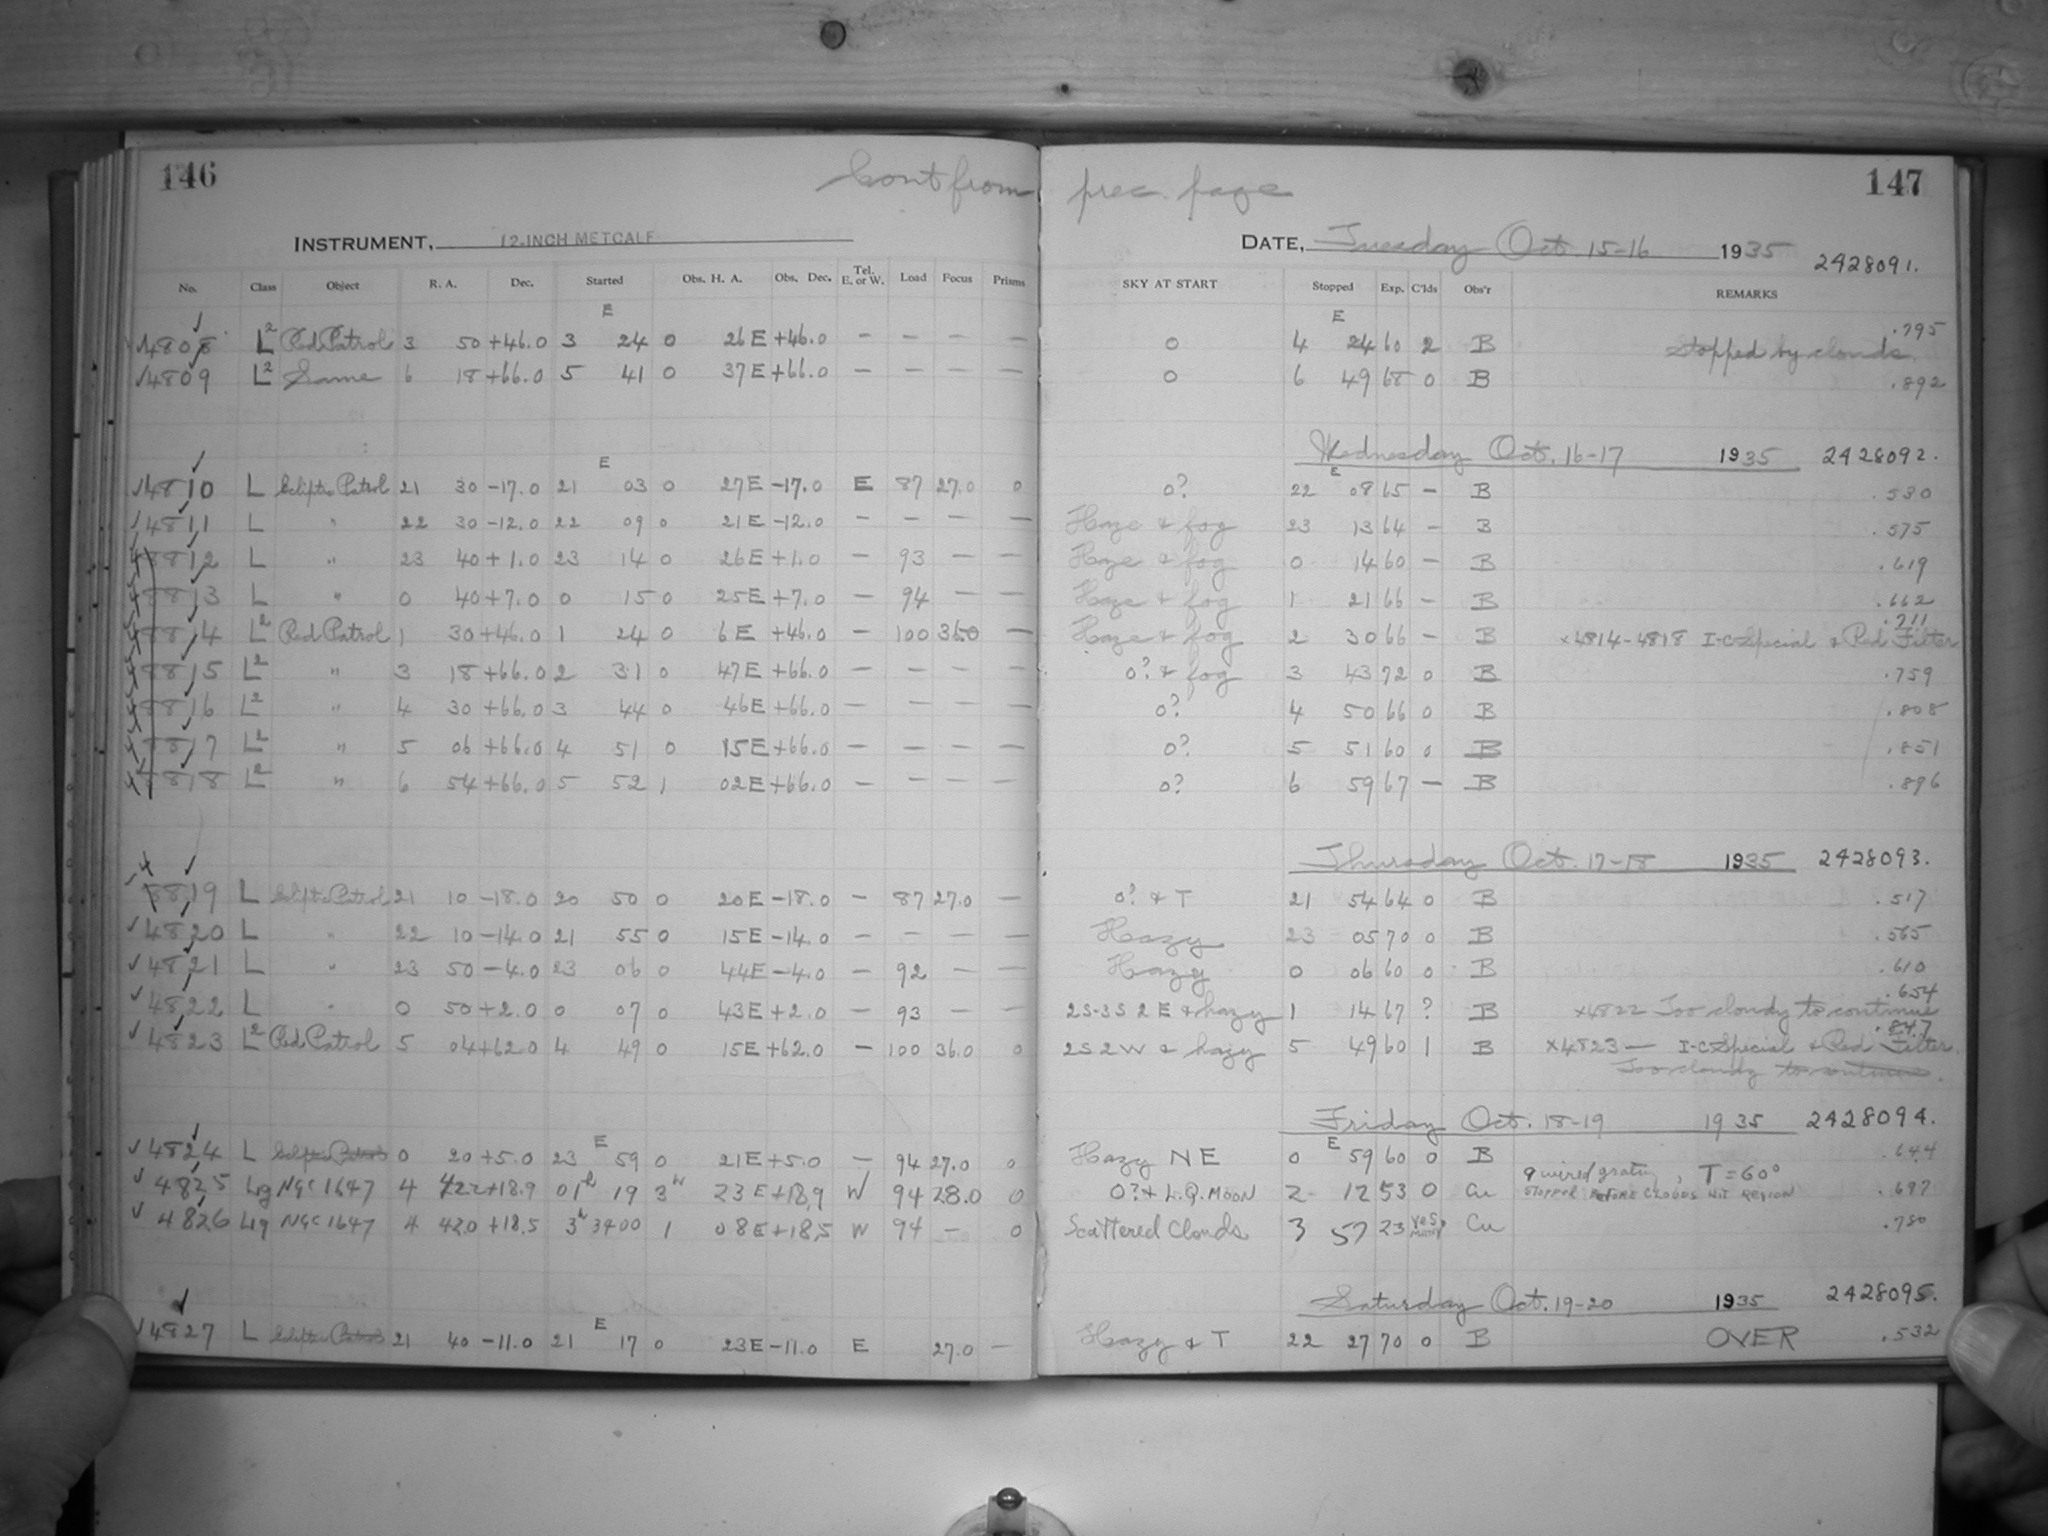 146 Cont from prec. page 147
INSTRUMENT, 12-INCH METCALF DATE, Tuesday Oct. 15-16 1935 2428091.
No. Class Object R. A. Dec. Started Obs. H. A. Obs. Dec. Tel. E. or W. Load Focus Prisms SKY AT START Stopped Exp. C'lds Obs'r REMARKS
E E
4808 L2 Red Patrol 3 50 +46.0 3 24 0 26E +46.0 — — — — 0 4 24 60 2 B Stopped by clouds .795
4809 L2 Same 6 18 +66.0 5 41 0 37E +66.0 — — — — 0 6 49 68 0 B .892
Wednesday Oct. 16-17 1935 2428092.
E E
4810 L Ecliptic Patrol 21 30 -17.0 21 03 0 27E -17.0 E 87 27.0 0 0? 22 08 65 — B .530
4811 L " 22 30 -12.0 22 09 0 21E -12.0 — — — — Haze & fog 23 13 64 — B .575
4812 L " 23 40 +1.0 23 14 0 26E +1.0 — 93 — — Haze & fog 0 14 60 — B .619
4813 L " 0 40 +7.0 0 15 0 25E +7.0 — 94 — — Haze & fog 1 21 66 — B .662
4814 L2 Red Patrol 1 30 +46.0 1 24 0 6E +46.0 — 100 36.0 — Haze & fog 2 30 66 — B x4814-4818 I-C Special & Red Filter .711
4815 L2 " 3 18 +66.0 2 31 0 47E +66.0 — — — — 0? & fog 3 43 72 0 B .759
4816 L2 " 4 30 +66.0 3 44 0 46E +66.0 — — — — 0? 4 50 66 0 B .808
4817 L2 " 5 06 +66.0 4 51 0 15E +66.0 — — — — 0? 5 51 60 0 B .851
4818 L2 " 6 54 +66.0 5 52 1 02E +66.0 — — — — 0? 6 59 67 — B .896
Thursday Oct. 17-18 1935 2428093.
4819 L Ecliptic Patrol 21 10 -18.0 20 50 0 20E -18.0 — 87 27.0 — 0? & T 21 54 64 0 B .517
4820 L " 22 10 -14.0 21 55 0 15E -14.0 — — — — Hazy 23 05 70 0 B .565
4821 L " 23 50 -4.0 23 06 0 44E -4.0 — 92 — — Hazy 0 06 60 0 B .610
4822 L " 0 50 +2.0 0 07 0 43E +2.0 — 93 — — 2S-3S 2E & hazy 1 14 67 ? B x4822 Too cloudy to continue .654
4823 L2 Red Patrol 5 04 +62.0 4 49 0 15E +62.0 — 100 36.0 0 2S 2W & hazy 5 49 60 1 B x4823 — I-C Special & Red Filter .847
Too cloudy to continue.
Friday Oct. 18-19 1935 2428094.
E E
4824 L Ecliptic Patrol 0 20 +5.0 23 59 0 21E +5.0 — 94 27.0 0 Hazy NE 0 59 60 0 B .644
4825 Lg NGC 1647 4 42 +18.9 01h 19 3 23E +18.9 W 94 28.0 0 0? + L.Q. MOON 2 12 53 0 Cu 9 wired grating, T=60° .697
STOPPED BEFORE CLOUDS HIT REGION
4826 Lg NGC 1647 4 42.0 +18.5 3h 34 00 1 08E +18.5 W 94 — 0 Scattered Clouds 3 57 23 yes, Cu .780
Saturday Oct. 19-20 1935 2428095.
E
4827 L Ecliptic Patrol 21 40 -11.0 21 17 0 23E -11.0 E 27.0 — Hazy & T 22 27 70 0 B OVER .532